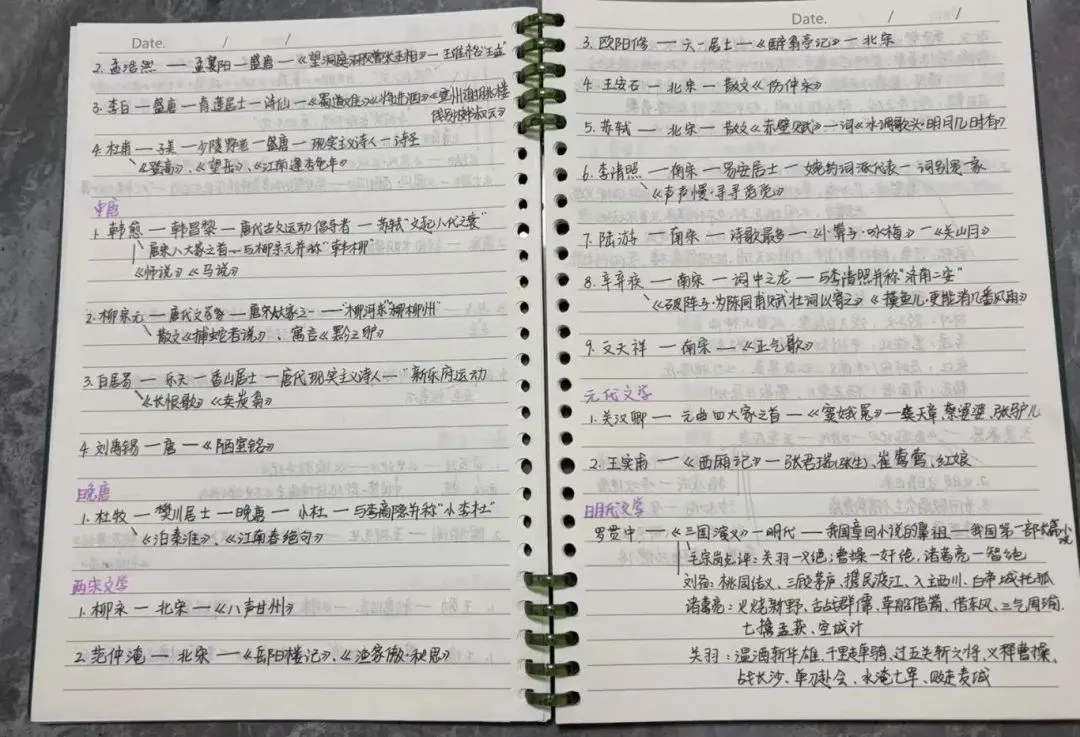 Date. / /
2. 孟浩然 — 孟襄阳 — 盛唐 — 《望洞庭湖赠张丞相》 — 王维和王孟
3. 李白 — 盛唐 — 青莲居士 — 诗仙 — 《蜀道难》《将进酒》《宣州谢朓楼
饯别校书叔云》
4. 杜甫 — 子美 — 少陵野老 — 盛唐 — 现实主义诗人 — 诗圣
《登高》、《望岳》、《江南逢李龟年》
中唐
1. 韩愈 — 韩昌黎 — 唐代古文运动倡导者 — 苏轼"文起八代之衰"
唐宋八大家之首 — 与柳宗元并称"韩柳"
《师说》《马说》
2. 柳宗元 — 唐代文学家 — 唐宋八大家之一 — "柳河东""柳柳州"
散文《捕蛇者说》、寓言《黔之驴》
3. 白居易 — 乐天 — 香山居士 — 唐代现实主义诗人 — "新乐府运动
《长恨歌》《卖炭翁》
4 刘禹锡 — 唐 — 《陋室铭》
晚唐
1. 杜牧 — 樊川居士 — 晚唐 — 小杜 — 与李商隐并称"小李杜"
《泊秦淮》、《江南春绝句》
两宋文学
1. 柳永 — 北宋 — 《八声甘州》
2. 范仲淹 — 北宋 — 《岳阳楼记》、《渔家傲·秋思》
Date. / /
3. 欧阳修 — 六一居士 — 《醉翁亭记》 — 北宋
4. 王安石 — 北宋 — 散文《伤仲永》
5. 苏轼 — 北宋 — 散文《赤壁赋》 — 词《水调歌头·明月几时有》
6. 李清照 — 南宋 — 易安居士 — 婉约词派代表 — 词别是一家
《声声慢·寻寻觅觅》
7. 陆游 — 南宋 — 诗歌最多 — 《卜算子·咏梅》 — 《关山月》
8. 辛弃疾 — 南宋 — 词中之龙 — 与李清照并称"济南二安"
《破阵子·为陈同甫赋壮词以寄之》《摸鱼儿·更能消几番风雨》
9. 文天祥 — 南宋 — 《正气歌》
元代文学
1. 关汉卿 — 元曲四大家之首 — 《窦娥冤》 — 窦天章、蔡婆婆、张驴儿
2. 王实甫 — 《西厢记》 — 张君瑞(张生)、崔莺莺、红娘
明代文学
罗贯中 — 《三国演义》 — 明代 — 我国章回小说的鼻祖 — 我国第一部长篇小说
毛宗岗点评：关羽一义绝；曹操一奸绝，诸葛亮一智绝
刘备：桃园结义、三顾茅庐、携民渡江、入主西川、白帝城托孤
诸葛亮：火烧新野、舌战群儒、草船借箭、借东风、三气周瑜、
七擒孟获、空城计
关羽：温酒斩华雄、千里走单骑、过五关斩六将、义释曹操、
战长沙、单刀赴会、水淹七军、败走麦城